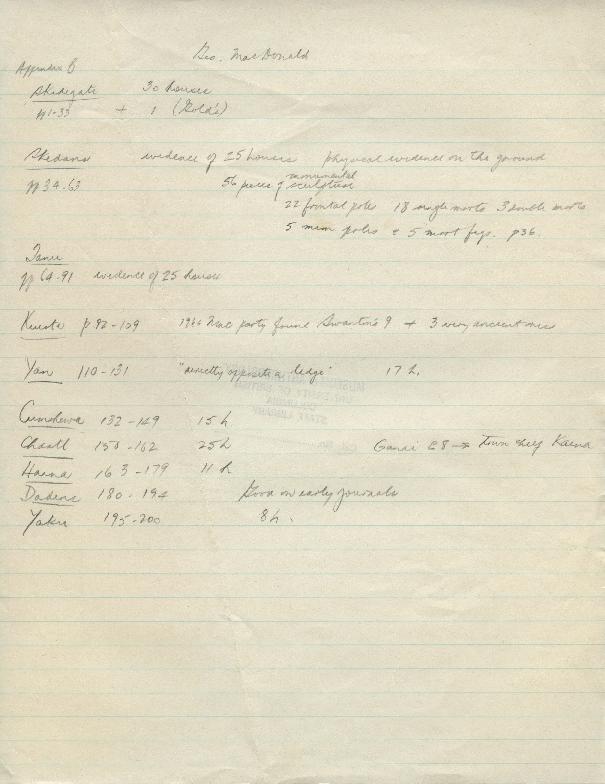 Geo. MacDonald
Appendix B
Skidegate 30 houses
pp1-33 + 1 (Gold's)
Skedans evidence of 25 houses physical evidence on the ground
pp 34-63 56 pieces of monumental sculpture
22 frontal poles 18 single morts 3 double morts
5 mem poles & 5 mort figs. p36.
Tanu
pp 64-91 evidence of 25 houses
Kiusta p. 92-109 1966 Mac party found Swanton's 9 + 3 very ancient ones
Yan 110-131 "directly opposite a ledge" 17 h.
Cumshewa 132-149 15 h
Chaatl 150-162 25h Ganai 28 → town chief Kaena
Haena 163-179 11 h
Dadens 180-194 Good on early journals
Yaku 195-200 8h.
MUSEUM OF
UNIVERSITY OF BRITISH
COLUMBIA
STAFF LIBRARY